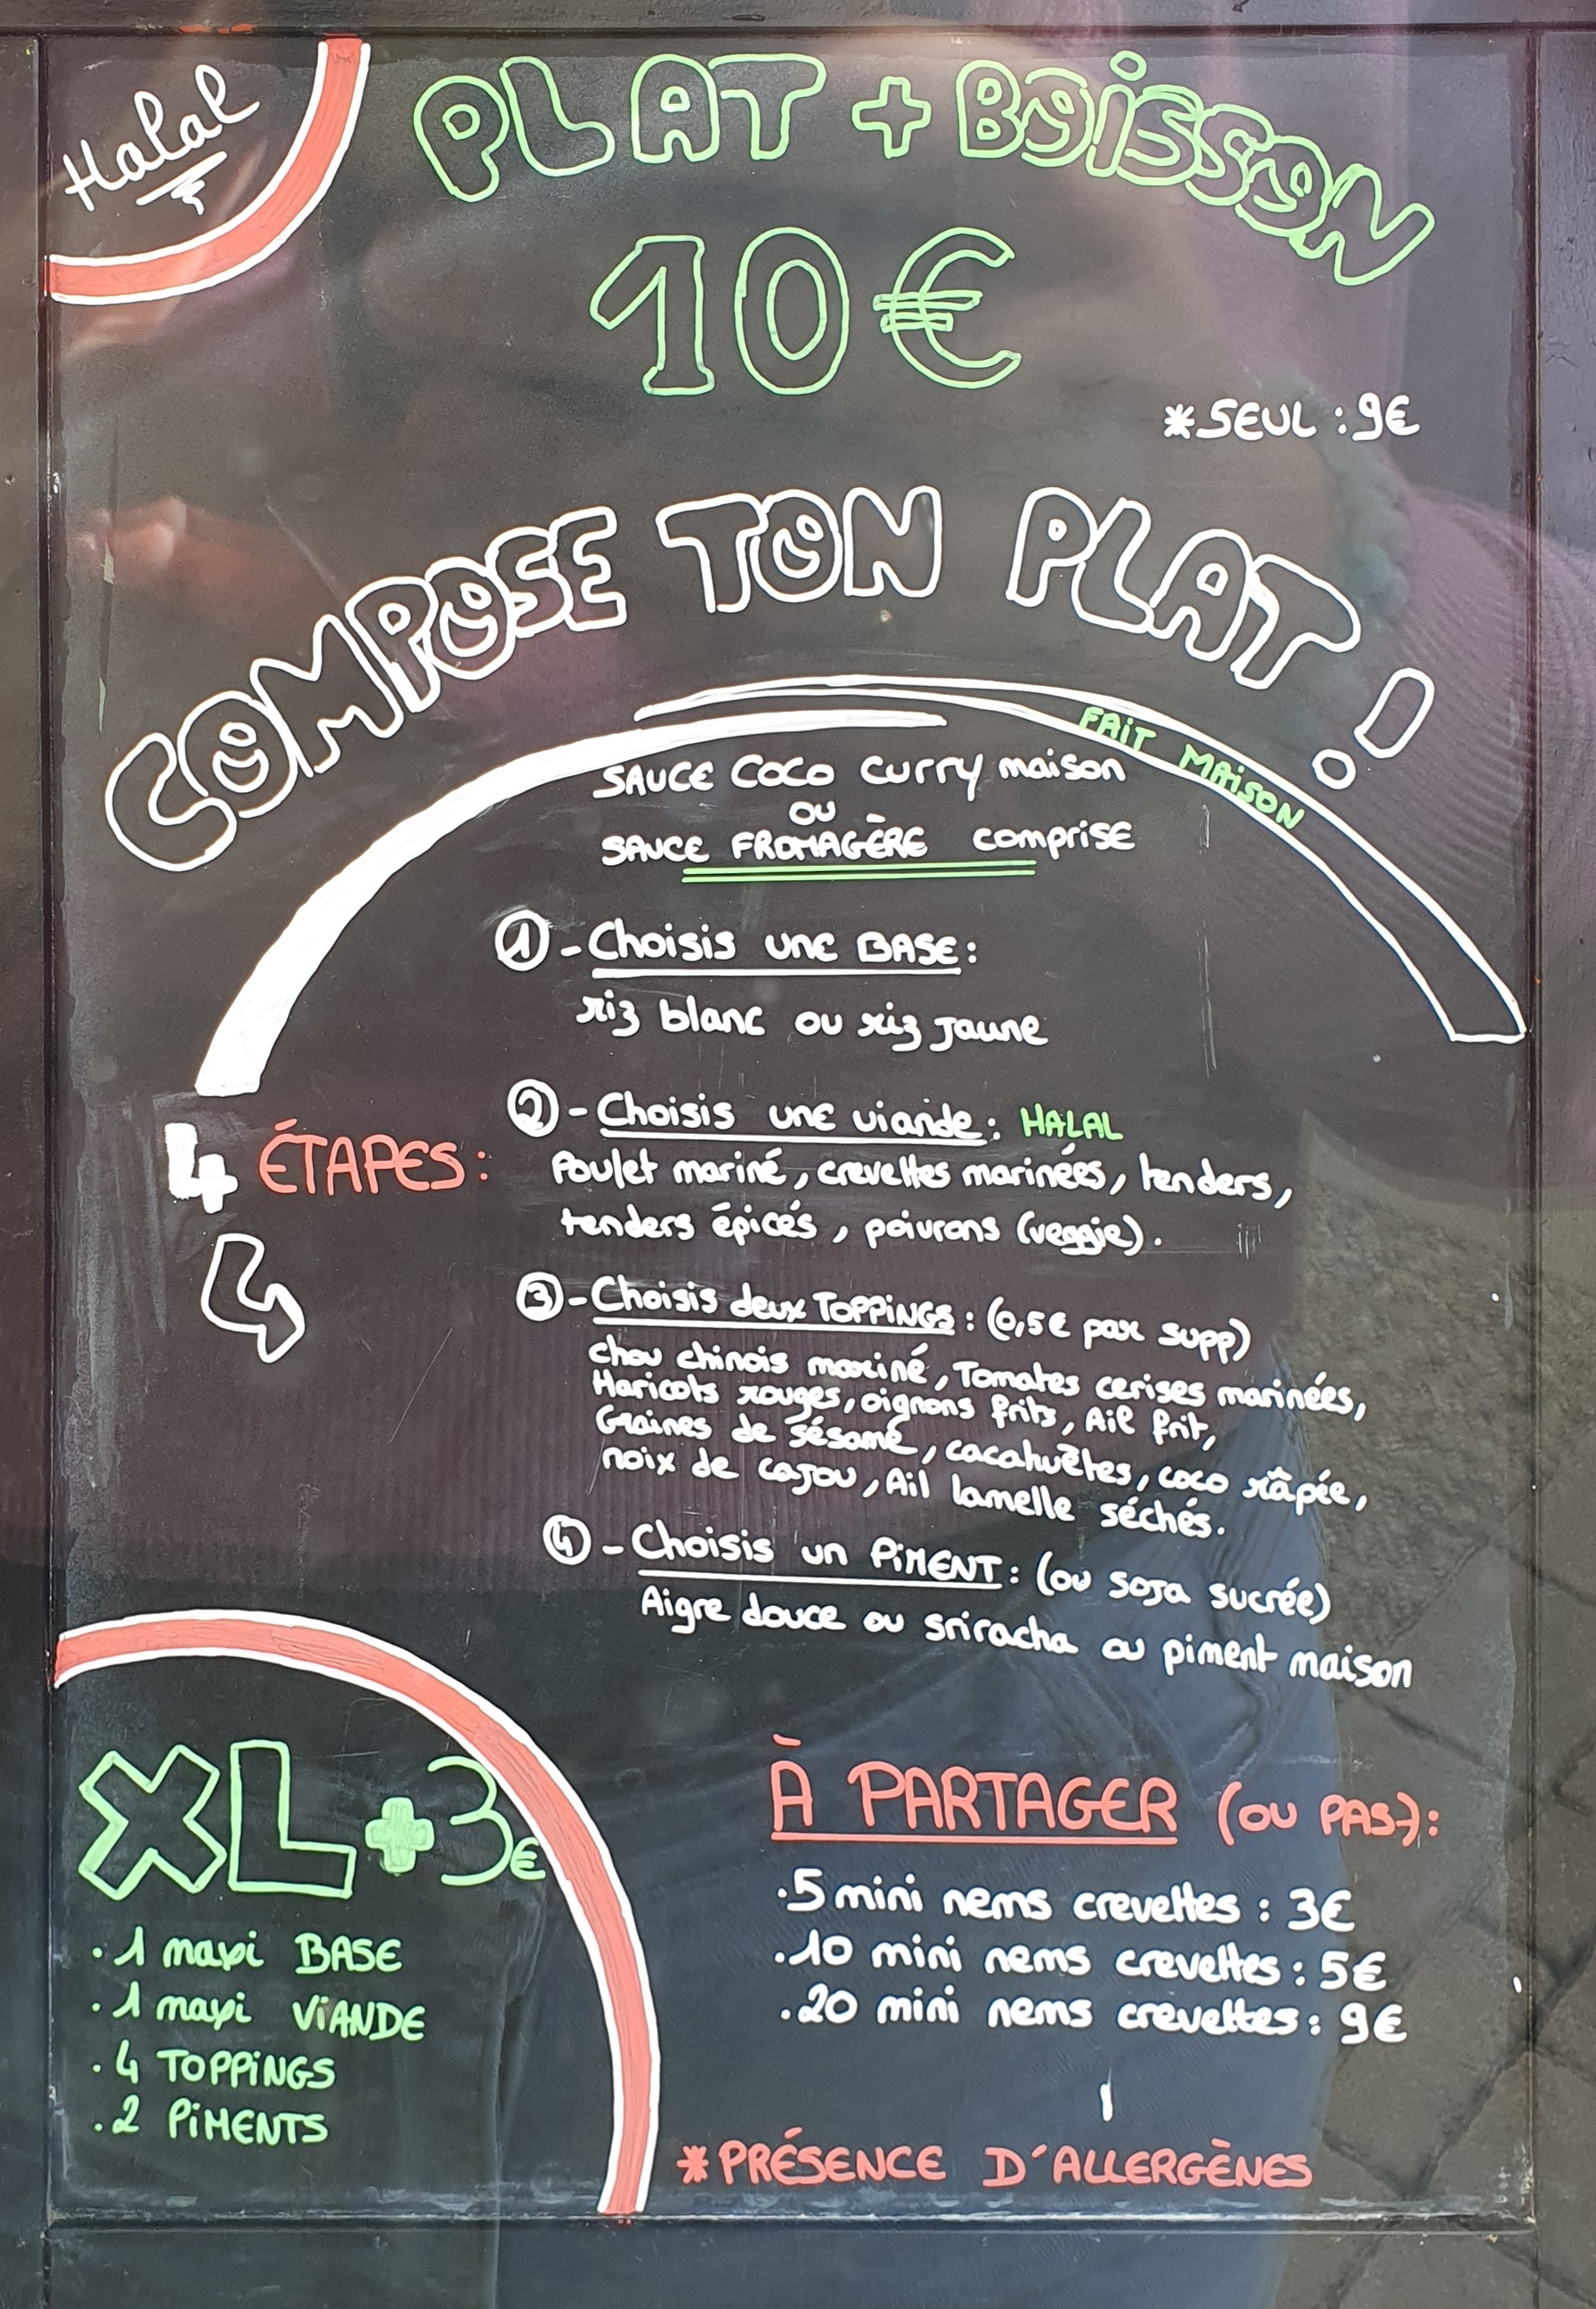 Halal
PLAT + BOISSON
10€
*SEUL : 9€
COMPOSE TON PLAT !
FAIT MAISON
SAUCE COCO CURRY maison
OU
SAUCE FROMAGÈRE comprise
1 - Choisis une BASE :
riz blanc ou riz jaune
4 ÉTAPES :
2 - Choisis une viande : HALAL
Poulet mariné, crevettes marinées, tenders,
tenders épicés, poivrons (veggie).
3 - Choisis deux TOPPINGS : (0,5€ par supp)
chou chinois mariné, Tomates cerises marinées,
Haricots rouges, oignons frits, Ail frit,
Graines de sésame, cacahuètes, coco râpée,
noix de cajou, Ail lamelle séchés.
4 - Choisis un PIMENT : (ou soja sucrée)
Aigre douce ou sriracha ou piment maison
XL + 3€
. 1 maxi BASE
. 1 maxi VIANDE
. 4 TOPPINGS
. 2 PIMENTS
À PARTAGER (OU PAS) :
. 5 mini nems crevettes : 3€
. 10 mini nems crevettes : 5€
. 20 mini nems crevettes : 9€
* PRÉSENCE D'ALLERGÈNES